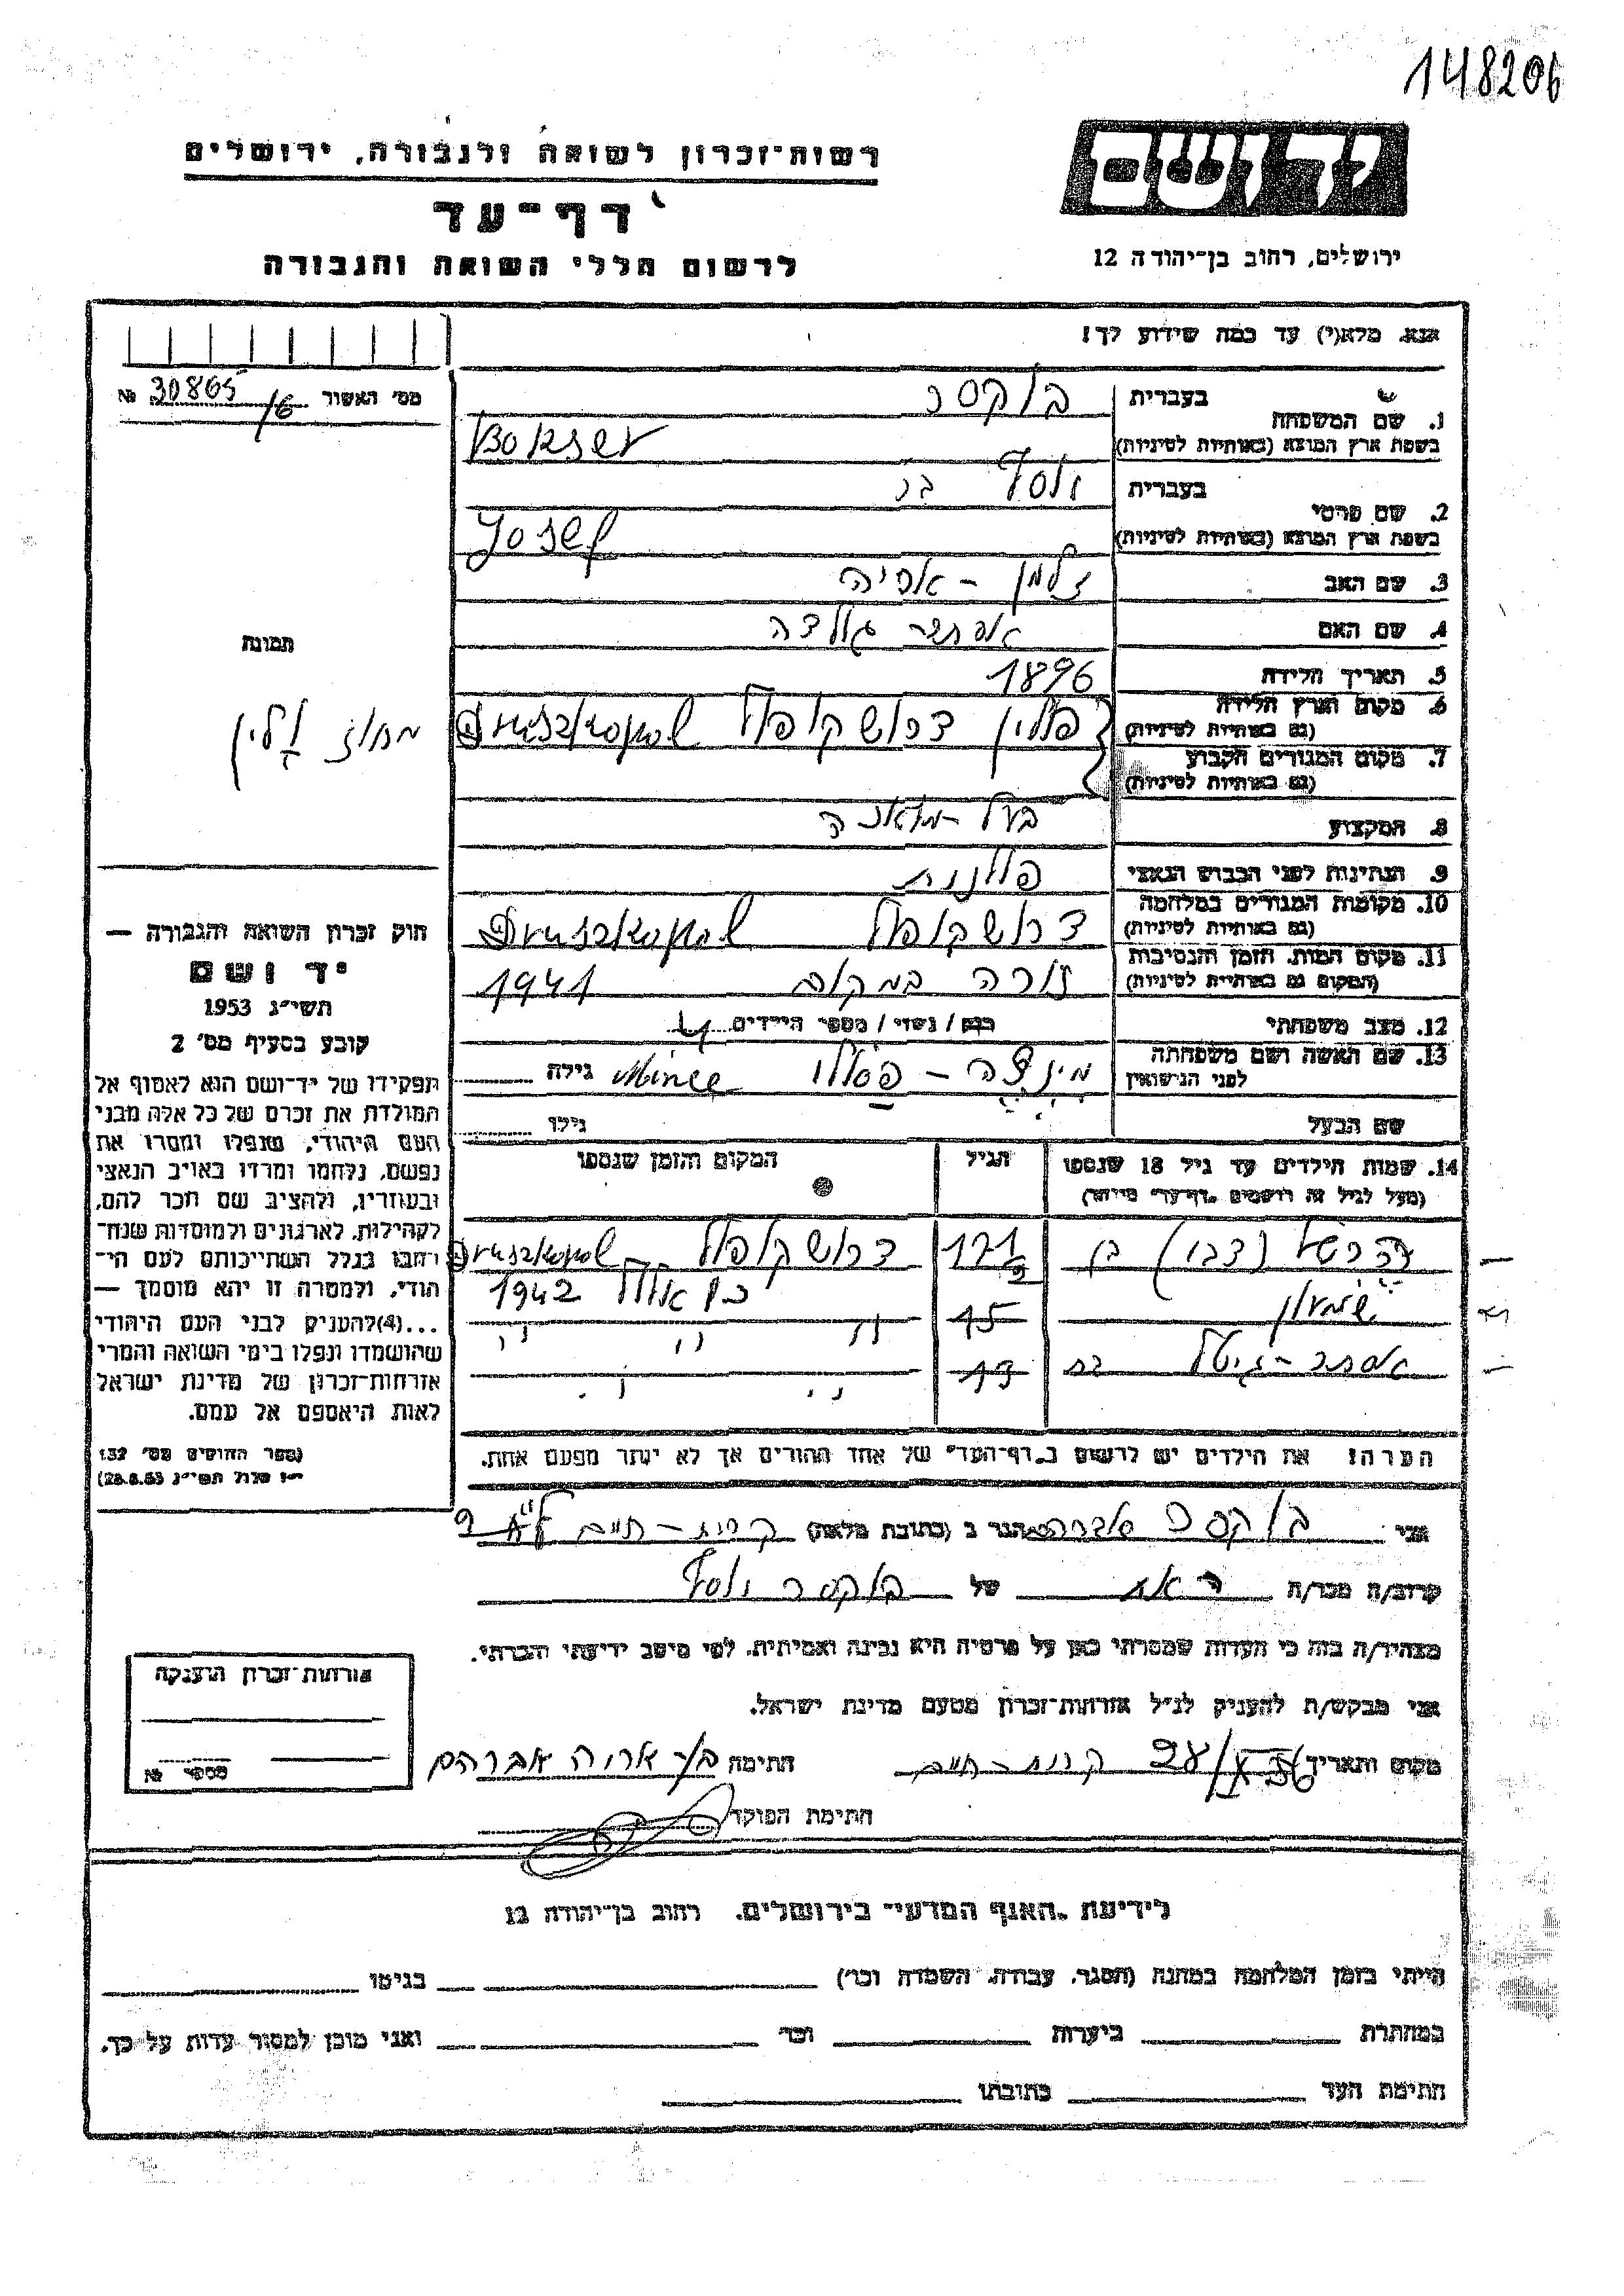 148206
רשות־זכרון לשואה ולגבורה, ירושלים
דף־עד
לרשום חללי השואה והגבורה
יד ושם
ירושלים, רחוב בן־יהודה 12
אנא, מלא(י) עד כמה שידוע לך!
מס' האשור 30865/6 №
1. שם המשפחה
בעברית בוקסר
בשפת ארץ המוצא (באותיות לטיניות) Bokser
2. שם פרטי
בעברית יוסף בר
בשפת ארץ המוצא (באותיות לטיניות) Josef
3. שם האב זלמן - אריה
4. שם האם אסתר גולדה
5. תאריך הלידה 1896
6. מקום וארץ הלידה (גם באותיות לטיניות) פולין דרושקופול Druszkopol
7. מקום המגורים הקבוע (גם באותיות לטיניות)
תמונה
מחוז וולין
8. המקצוע בעל-מאפיה
9. הנתינות לפני הכבוש הנאצי פולנית
10. מקומות המגורים במלחמה (גם באותיות לטיניות) דרושקופול Druszkopol
11. מקום המות, הזמן והנסיבות (המקום גם באותיות לטיניות) נורה במקום 1941
12. מצב משפחתי רווק / נשוי / מספר הילדים 4
13. שם האשה ושם משפחתה לפני הנישואין מינצה - Mince גילה
שם הבעל גילו
14. שמות הילדים עד גיל 18 שנספו (מעל לגיל זה רושמים "דף־עד" מיוחד)
הגיל
המקום והזמן שנספו
הרשל (צבי) בן 17½ דרושקופול Druszkopol
שמעון 15 כ"ו אלול 1942
אסתר-גיטל בת 13 " " "
הערה! את הילדים יש לרשום ב"דף־העד" של אחד ההורים אך לא יותר מפעם אחת.
חוק זכרון השואה והגבורה —
יד ושם
תשי"ג 1953
קובע בסעיף מס' 2
תפקידו של יד־ושם הוא לאסוף אל
המולדת את זכרם של כל אלה מבני
העם היהודי, שנפלו ומסרו את
נפשם, נלחמו ומרדו באויב הנאצי
ובעוזריו, ולהציב שם וזכר להם,
לקהילות, לארגונים ולמוסדות שנח־
רבו בגלל השתייכותם לעם הי־
הודי, ולמטרה זו יהא מוסמך —
...(4)להעניק לבני העם היהודי
שהושמדו ונפלו בימי השואה והמרי
אזרחות־זכרון של מדינת ישראל
לאות היאספם אל עמם.
(ספר החוקים מס' 132
י"ז אלול תשי"ג 28.8.53)
אני בוקסר הגר ב (כתובת מלאה) קרית-חיים
קרוב/ה מכר/ה אח של בוקסר יוסף
מצהיר/ה בזה כי העדות שמסרתי כאן על פרטיה היא נכונה ואמיתית, לפי מיטב ידיעתי והכרתי.
אני מבקש/ת להעניק לנ"ל אזרחות־זכרון מטעם מדינת ישראל.
מקום ותאריך קרית-חיים 28/X 56 חתימה בן אריה אברהם
חתימת הפוקד
אזרחות־זכרון הוענקה
מספר №
לידיעת "האגף המדעי" בירושלים, רחוב בן־יהודה 12
הייתי בזמן המלחמה במחנה (הסגר, עבודה, השמדה וכו') בגיטו
במחתרת ביערות וכו' ואני מוכן למסור עדות על כך.
חתימת העד כתובתו